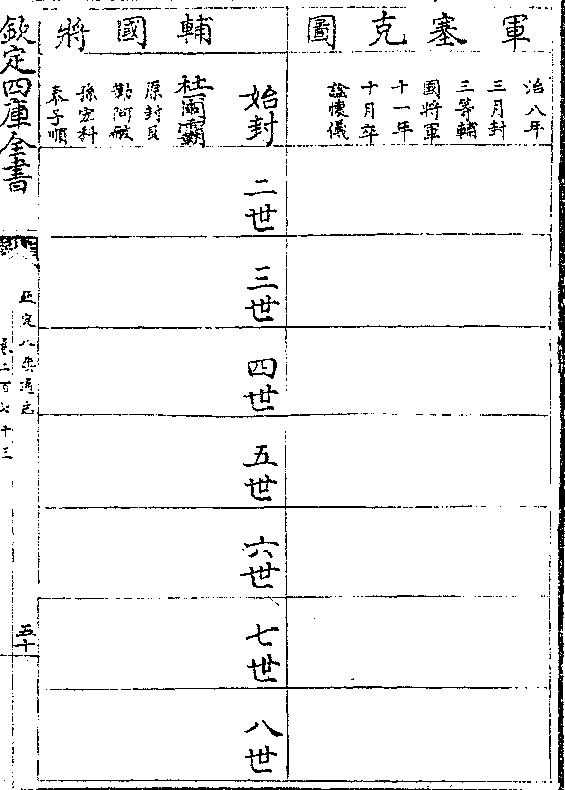 軍塞克圖
治八年
三月封
三等輔
國將軍
十一年
十月卒
諡懷儀
輔國將
始封
二世
三世
四世
五世
六世
七世
八世
杜爾霸
原封貝
勒阿敏
孫宏科
泰子順
欽定四庫全書
欽定八旗通志
卷二百七十三
五十